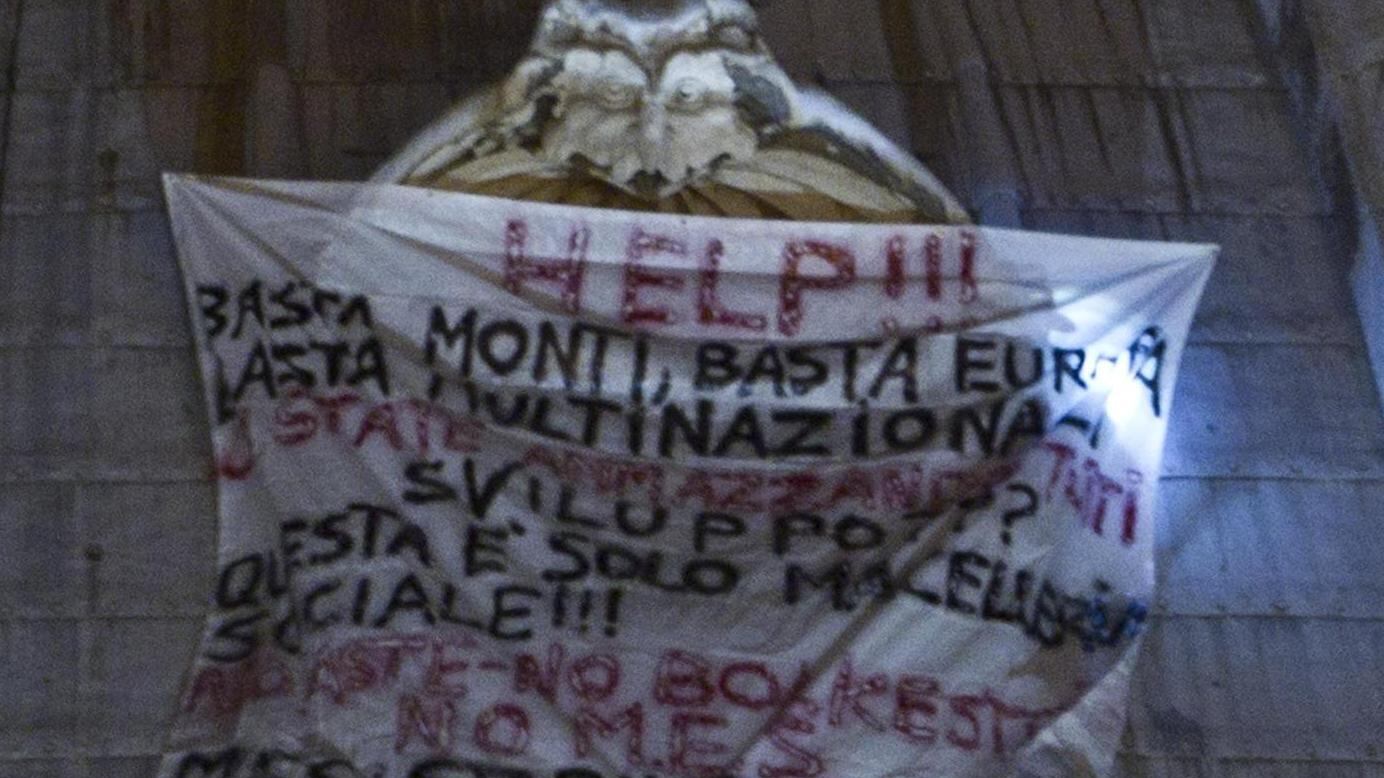 HELP!!!
BASTA MONTI, BASTA EUROPA
BASTA MULTINAZIONALI
STATE AMMAZZANDO TUTTI
SVILUPPO???
QUESTA E' SOLO MACELLERIA
SOCIALE!!!
NO ASTE-NO BOLKESTEIN
NO M.E.S